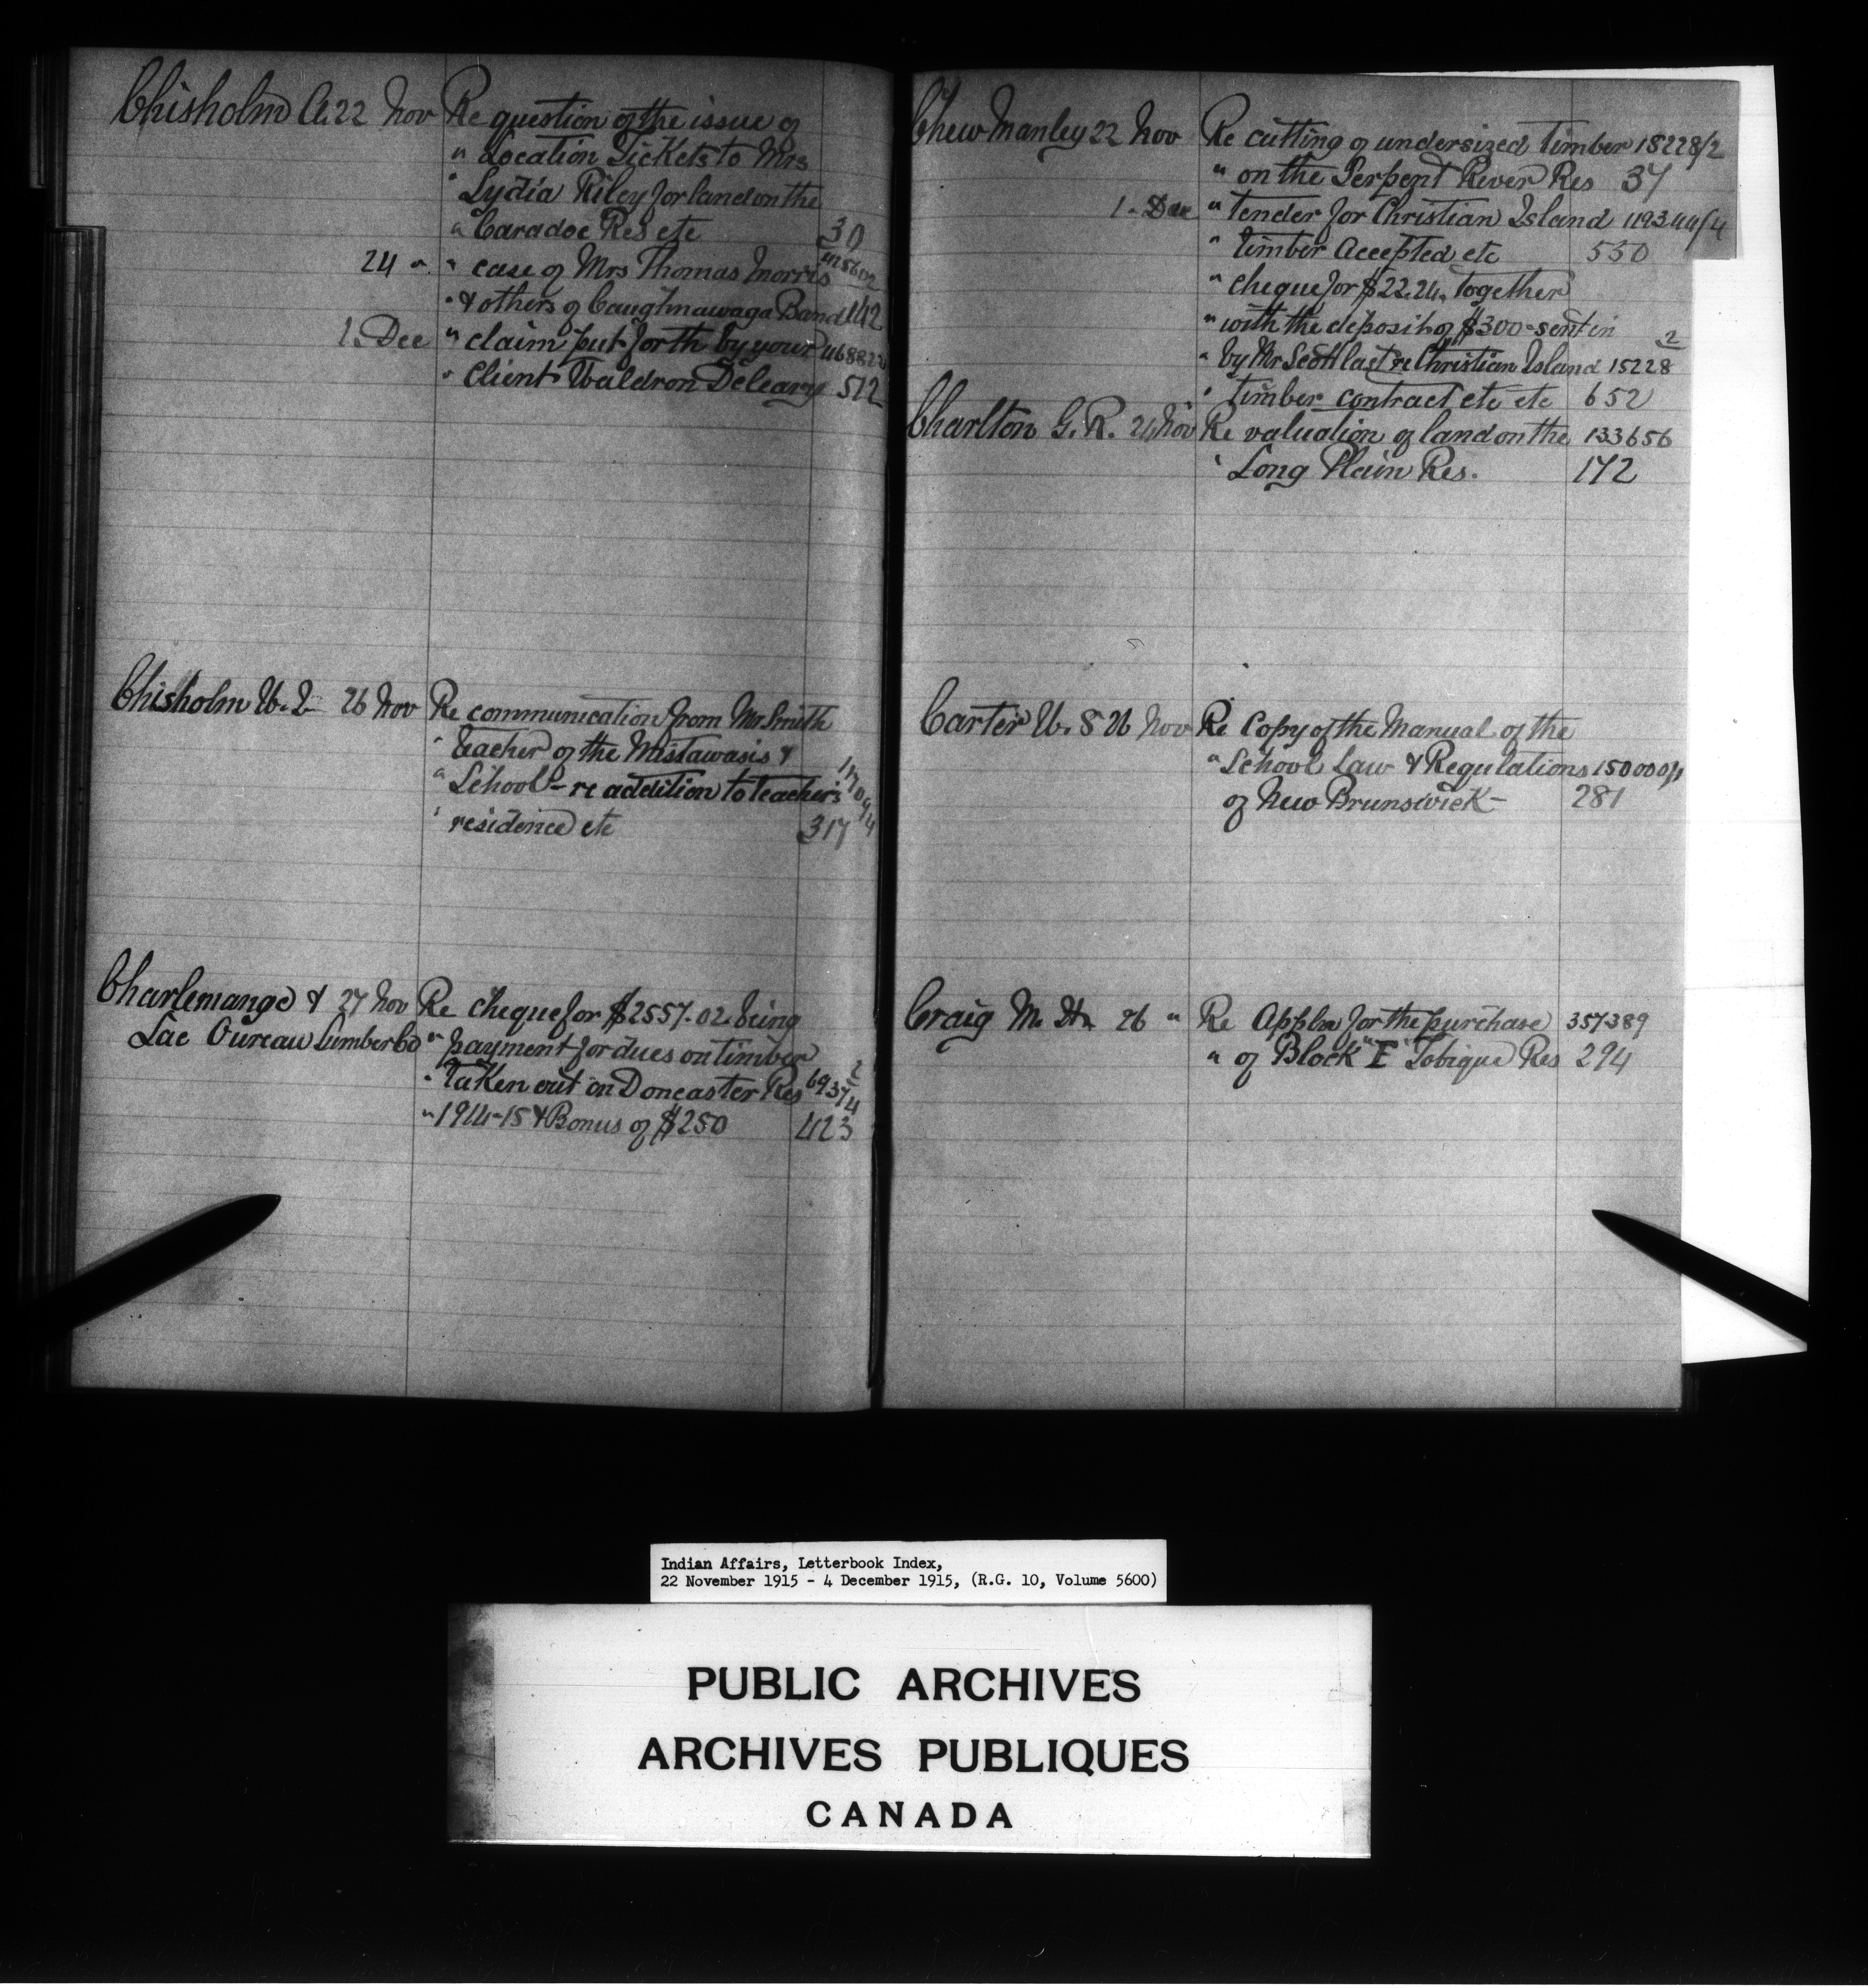 Chisholm A. 22 Nov Re question of the issue of
" Location Tickets to Mrs
" Lydia Riley for land on the
" Caradoc Res etc 30
24 " " case of Mrs Thomas Morris
" & others of Caughnawaga Band 142
1. Dec " claim put forth by your 468822
" Client Waldron Deleary 512
Chisholm W. 26 Nov Re communication from Mr Smith
" teacher of the Mistawasis &
" School - re addition to teachers
" residence etc 317
Charlemange & 27 Nov Re cheque for $2557.02 being
Lac Oureau Lumber Co " payment for dues on timber
" Taken out on Doncaster Res 6937/4 2
" 1914-15 & Bonus of $250 423
Chew Manley 22 Nov Re cutting of undersized timber 18228/2
" on the Serpent River Res 37
1. Dec " tender for Christian Island 119344/4
" timber accepted etc 530
" cheque for $22.24, together
" with the deposit of $300- sent in 2
" by Mr Scott last re Christian Island 15228
" timber contract etc etc 652
Charlton G. R. 24 Nov Re valuation of land on the 133656
" Long Plain Res. 172
Carter W. S 26 Nov Re Copy of the Manual of the
" School Law & Regulations 150000/1
of New Brunswick- 281
Craig M. H. 26 " Re Appln for the purchase 357389
" of Block "I" Tobique Res 294
Indian Affairs, Letterbook Index,
22 November 1915 - 4 December 1915, (R.G. 10, Volume 5600)
PUBLIC ARCHIVES
ARCHIVES PUBLIQUES
CANADA